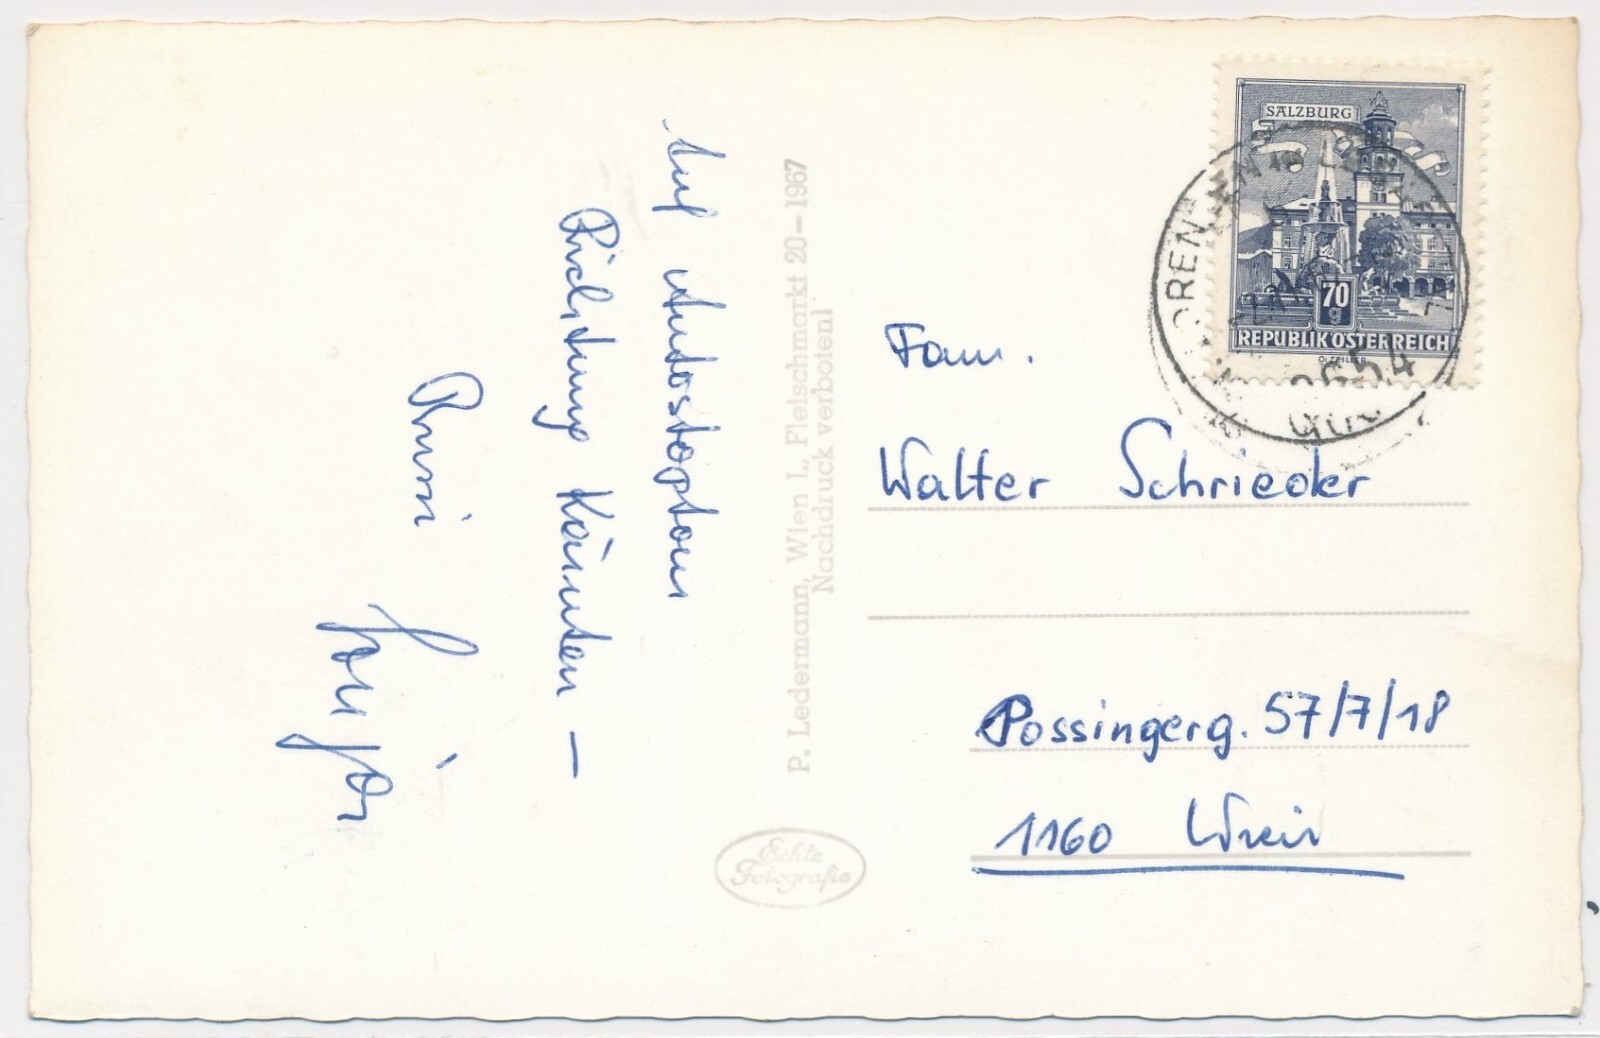 Auf Autostoptour
Richtung Kärnten –
P. Ledermann, Wien I., Fleischmarkt 20–1967
Nachdruck verboten!
Echte
Fotografie
SALZBURG
70
g
REPUBLIK ÖSTERREICH
Fam.
Walter Schrieder
Possingerg. 57/7/18
1160 Wien